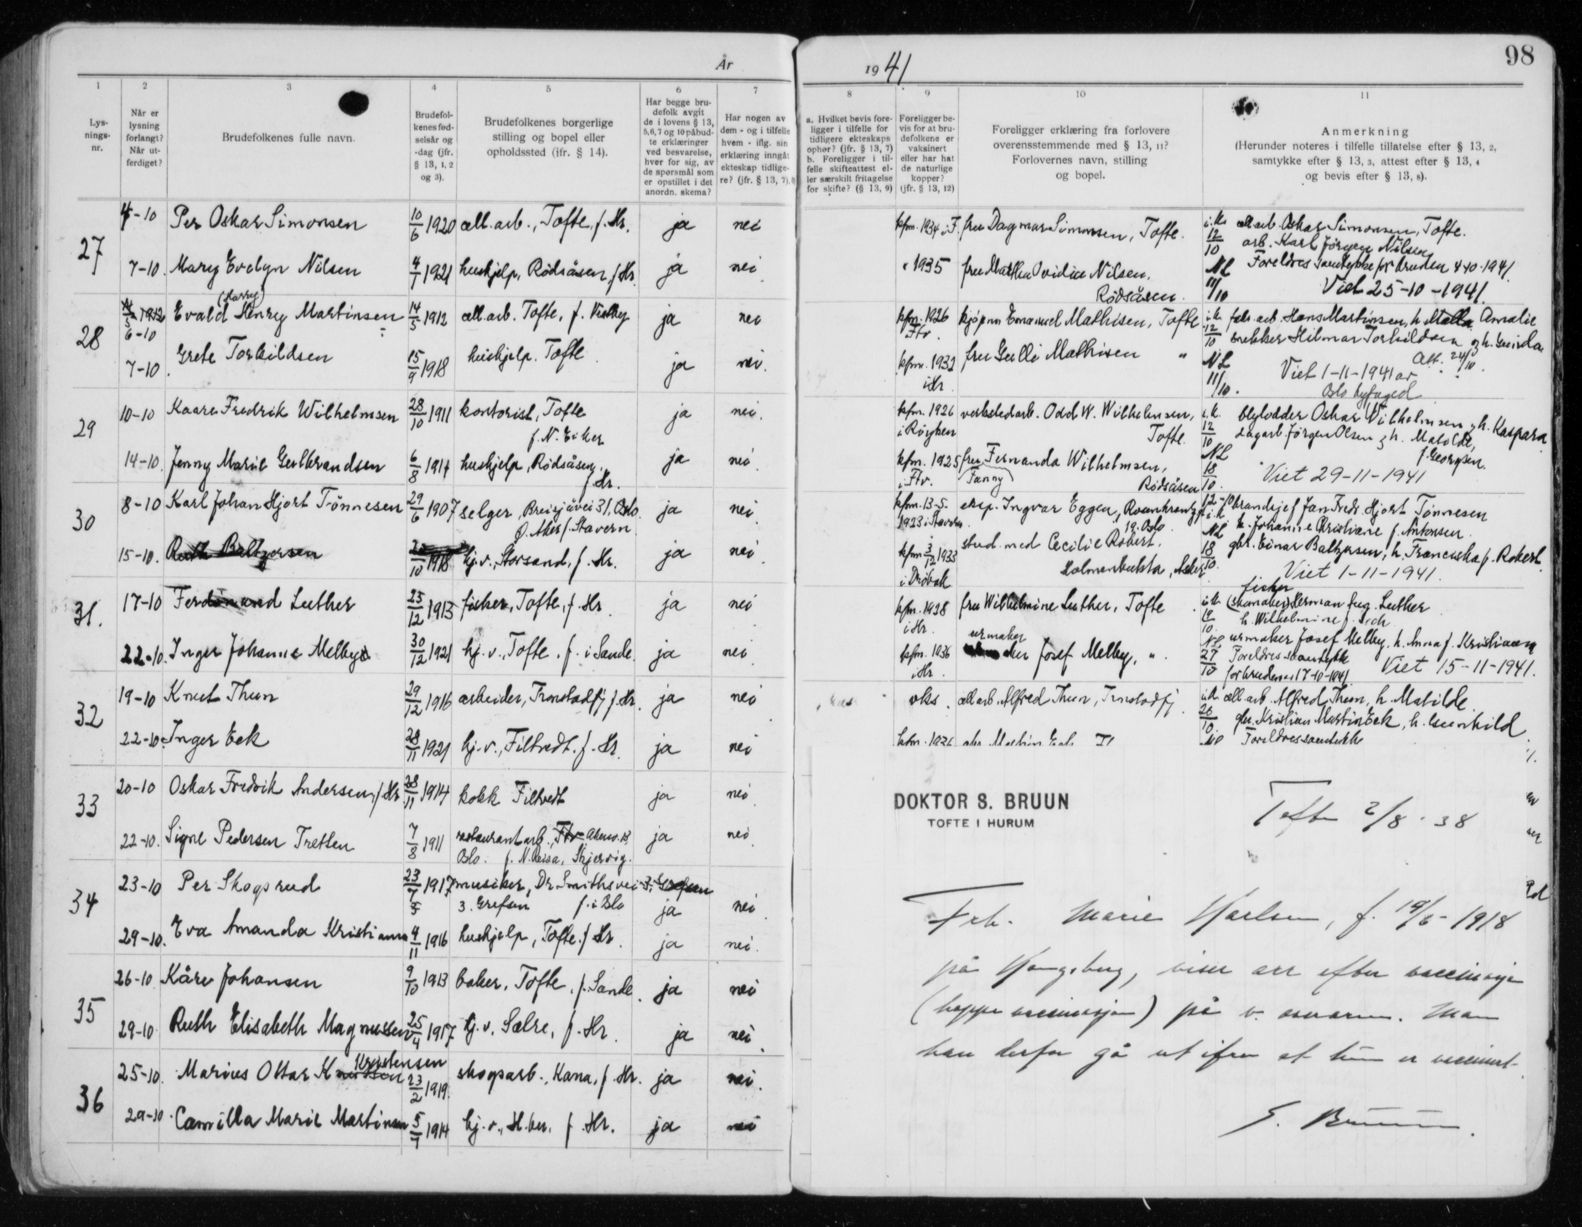 År
1941
98
1
2
3
4
5
6
7
8
9
10
11
Lys-
nings-
nr.
Når er
lysning
forlangt?
Når ut-
ferdiget?
Brudefolkenes fulle navn.
Brudefol-
kenes fød-
selsår og
-dag (jfr.
§ 13, 1, 2
og 3).
Brudefolkenes borgerlige
stilling og bopel eller
opholdssted (jfr. § 14).
Har begge bru-
defolk avgit
de i lovens § 13,
5,6,7 og 10 påbud-
te erklæringer
ved besvarelse,
hver for sig, av
de spørsmål som
er opstillet i det
anordn. skema?
Har nogen av
dem - og i tilfelle
hvem - iflg. sin
erklæring inngåt
ekteskap tidlige-
re? (jfr. § 13, 7).
a. Hvilket bevis fore-
ligger i tilfelle for
tidligere ekteskaps
ophør? (jfr. § 13, 7)
b. Foreligger i til-
felle skifteattest el-
ler særskilt fritagelse
for skifte? (§ 13, 9)
Foreligger be-
vis for at bru-
defolkene er
vaksinert
eller har hat
de naturlige
kopper?
(jfr. § 13, 12)
Foreligger erklæring fra forlovere
overensstemmende med § 13, 11?
Forlovernes navn, stilling
og bopel.
Anmerkning
(Herunder noteres i tilfelle tillatelse efter § 13, 2,
samtykke efter § 13, 3, attest efter § 13, 4
og bevis efter § 13, 8).
27
4-10 Per Oskar Simonsen 10/6 1920 cell. arb., Tofte, f. Hr. ja nei kfm. 1934 i F. fru Dagmar Simonsen, Tofte. cell. arb. Oskar Simonsen, Tofte.
12/10 arb. Karl Jørgen Nilsen
7-10. Mary Evelyn Nilsen 4/7 1921 hushjelp, Rødsåsen, f. Hr. ja nei " 1935 fru Martha Ovidia Nilsen, Rødsåsen. NL 11/10 Foreldres samtykke for bruden 4-10-1941
Viet 25-10-1941
28
6-10 Evald (Harry) Henry Martinsen 14/5 1912 cell. arb. Tofte, f. ja nei kfm. 1926 kjøpm Emanuel Mathisen, Tofte 12/10 fabr. arb. Hans Martinsen, h. Amalie
7-10. Grete Torkildsen 15/9 1918 hushjelp. Tofte ja nei. kfm. 1932 i Hr. fru Gulli Mathisen " snekker Hilmar Torkildsen
NL 11/10. Viet 1-11-1941 av
Oslo byfoged
29
10-10 Kaare Fredrik Wilhelmsen 28/10 1911 kontorist, Tofte f. N. Eiker ja nei. kfm. 1926 i Røyken verkstedarb. Odd W. Wilhelmsen, Tofte. 12/10 Oskar Wilhelmsen h. Kaspara
dagarb. Jørgen Olsen h. Matilde, f. Georgsen.
14-10. Jenny Marie Gulbrandsen 6/8 1917 hushjelp, Rødsåsen, f. Hr. ja nei kfm. 1925 i Ftv. fru Fernanda (Fanny) Wilhelmsen, Rødsåsen NL 18/10. Viet 29-11-1941
30
8-10 Karl Johan Hjort Tønnesen 29/6 1907 selger, 31, Oslo f. Stavern ja nei. kfm. 13-5. 1923 i Stavern eksp. Ingvar Eggen, 19. Oslo. 12-10 Hjort Tønnesen
h. Johanne Kristiane f. Antonsen.
15-10. Ruth Baltzersen 10 1918 hj. v. Storsand, f. Hr. ja nei. kfm 3/12 1933 i Drøbak stud. med Cecilie Robert, Holmenbukta, Asker NL 18/10. gbr. Einar Baltzersen, h. Franciska f. Robert.
Viet 1-11-1941.
31.
17-10 Ferdinand Luther 23/12 1913 fisker, Tofte, f. Hr. ja nei kfm. 1938 i Hr. fru Wilhelmine Luther, Tofte fisker (skomaker) Herman Aug. Luther
h. Wilhelmine f.
22-10. Inger Johanne Melbye 30/12 1921 hj. v., Tofte, f. i Sande. ja nei. kfm. 1936 i Hr. urmaker Josef Melby, " . urmaker Josef Melby, h. Anna f. Kristiansen
27/10 Foreldres samtykke for bruden 17-10-1941 Viet 15-11-1941.
32
19-10 Knut Thun 29/12 1916 arbeider, Tronstadfj. f. Hr. ja nei vks. cell. arb. Alfred Thun, Tronstadfj. cell. arb. Alfred Thun, h. Matilde.
22-10. Inger Eek 28/11 1921 hj. v., Filtvedt. f. Hr. ja nei kfm. 1936 26/10 gbr. Kristian Martin Eek, h. Gunhild
Foreldres samtykke
33
20-10 Oskar Fredrik Andersen, f. Hr 28/11 1914 kokk Filtvedt ja nei.
22-10. Signe Pedersen Tretten 7/8 1911 restaurantarb., Oslo. f. N. Reisa, Skjervøy. ja nei
34
23-10 Per Skogsrud 23/1917 musiker, Dr. Smithsvei 3. Grefsen f. i Oslo ja nei.
29-10. Eva Amanda Kristiansen 4/11 1916 hushjelp, Tofte. f. Hr. ja nei.
35
26-10 Kåre Johansen 9/10 1913 baker, Tofte, f. Sande. ja nei
29-10 Ruth Elisabeth Magnussen 25/4 1917 hj. v. Sætre, f. Hr. ja nei.
36
25-10. Marius Ottar Kristensen 23/2 1919. skogsarb., Kana, f. Hr. ja nei.
29-10. Camilla Marie Martinsen 5/7 1914 hj. v., f. Hr. ja nei
DOKTOR S. BRUUN
TOFTE I HURUM
Tofte 2/8 · 38
Frk. Marie Karlsen, f. 19/6-1918
på Kongsberg, viser arr efter vaccinasjon
(koppevaccinasjon) på v. overarm. Man
kan derfor gå ut ifra at hun er vaccinert.
S. Bruun.